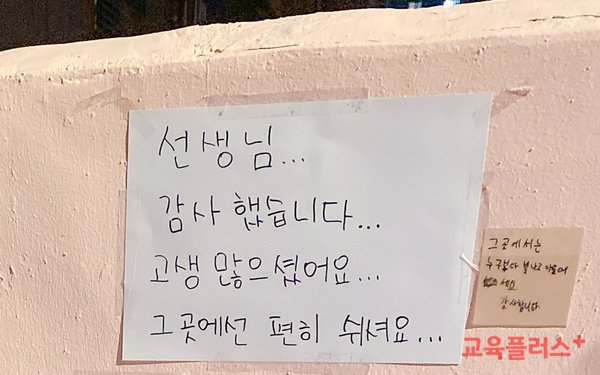 선생님...
감사 했습니다...
고생 많으셨어요...
그곳에선 편히 쉬셔요...
그곳에서는
누구보다
감사합니다
교육플러스+